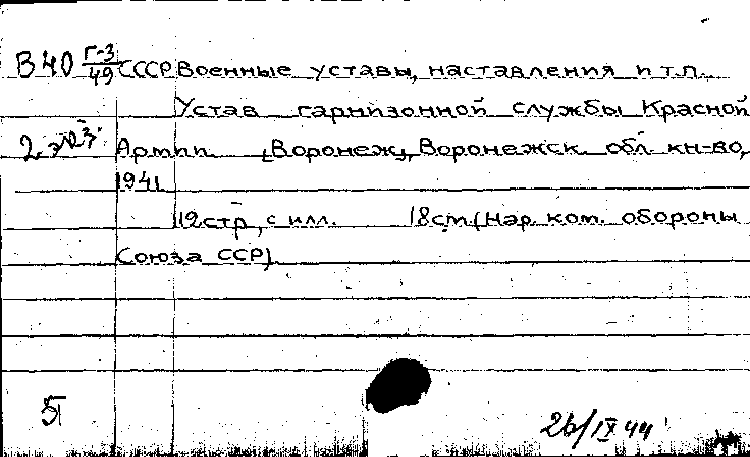 В40 Г-3/49 СССР Военные уставы, наставления и т.п.
Устав гарнизонной службы Красной
2 экз. Армии. [Воронеж], Воронежск. обл. кн-во,
1941.
112 стр., с илл. 18 см. (Нар. ком. обороны
Союза ССР)
26/IX 44